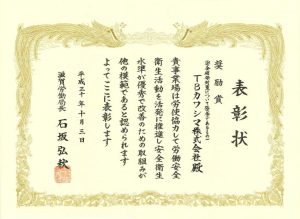 表彰状
奨励賞
TBカワシマ株式会社殿
貴事業場は労使協力して労働安全
衛生活動を活発に推進し安全衛生
水準が優秀で改善のための取組みが
他の模範であると認められます
よってここに表彰します
平成三十年十月三日
滋賀労働局長 石坂弘秋